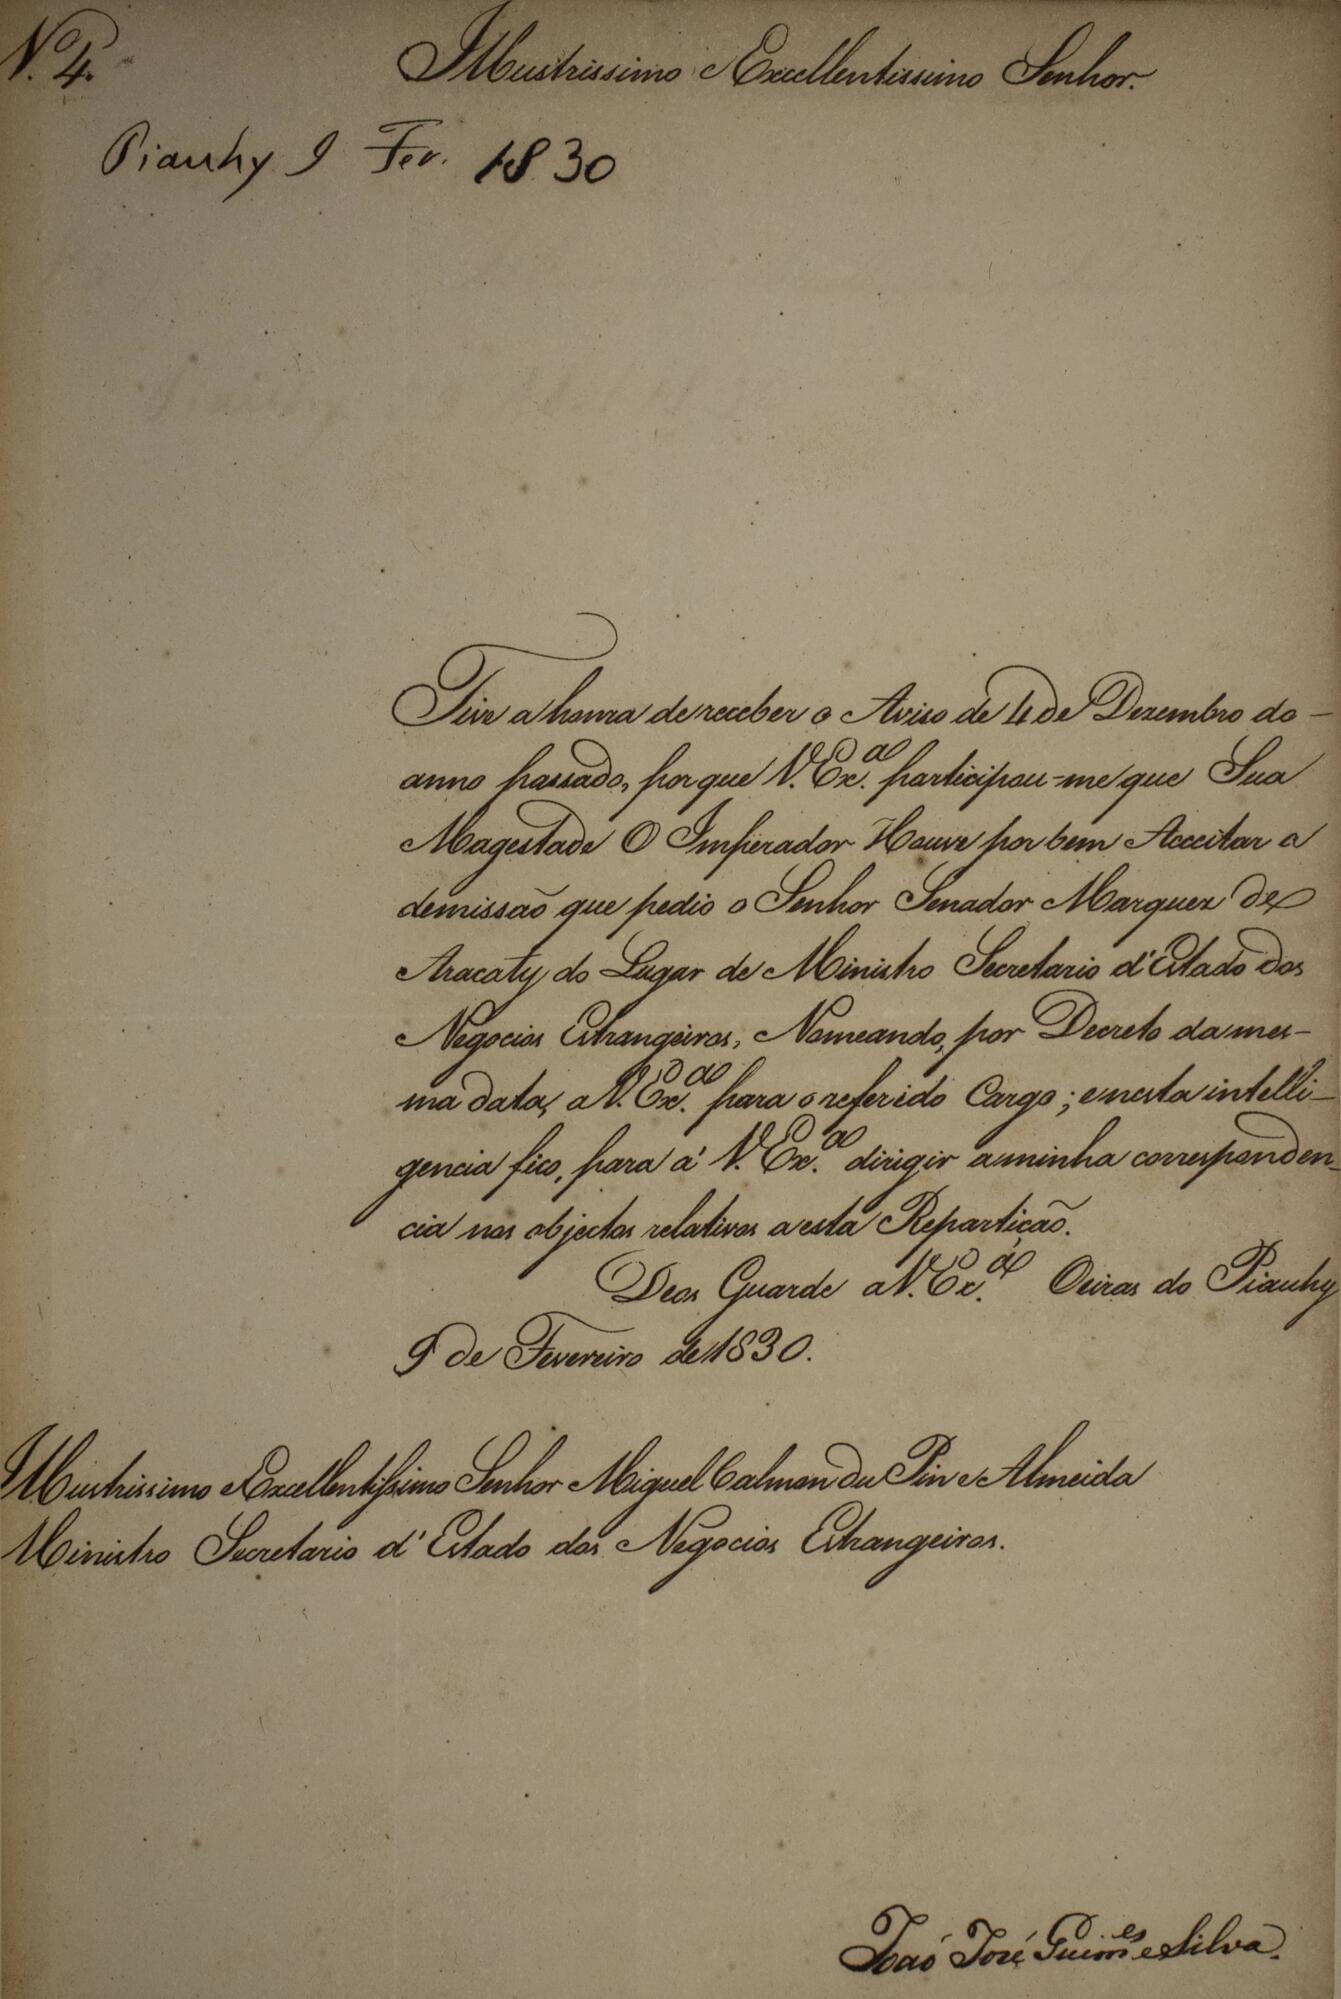 N.º 4.
Illustrissimo e Excellentissimo Senhor.
Piauhy 9 Fev. 1830
Tive a honra de receber o Aviso de 4 de Dezembro do
anno passado, por que V. Ex.ª participou-me que Sua
Magestade O Imperador Houve por bem Acceitar a
demissão que pedio o Senhor Senador Marquez de
Aracaty do Lugar de Ministro Secretario d'Estado dos
Negocios Estrangeiros, Nomeando, por Decreto da mes-
ma data, a V. Ex.ª para o referido Cargo; e nesta intelli-
gencia fico, para á V. Ex.ª dirigir a minha corresponden-
cia nos objectos relativos a esta Repartição.
Deos Guarde a V. Ex.ª Oeiras do Piauhy
9 de Fevereiro de 1830.
Illustrissimo e Excellentissimo Senhor Miguel Calmon du Pin e Almeida
Ministro Secretario d'Estado dos Negocios Estrangeiros.
João José Guim.es e Silva.